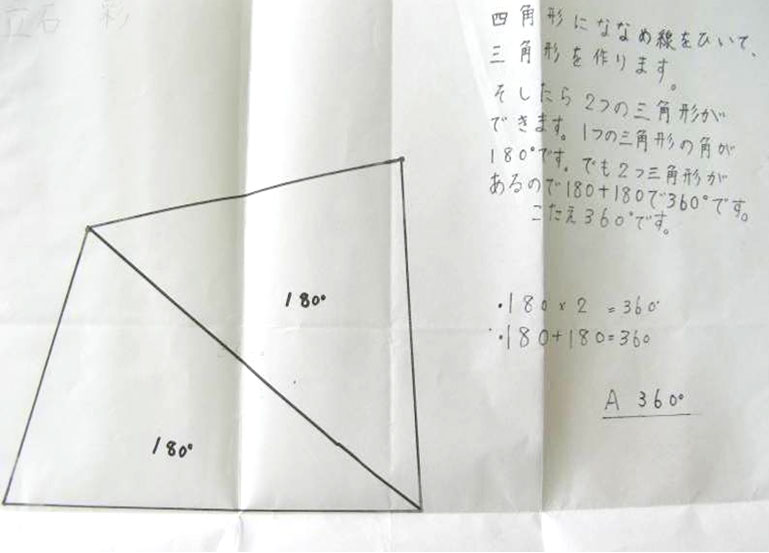 立石 彩
四角形にななめ線をひいて、
三角形を作ります。
そしたら2つの三角形が
できます。1つの三角形の角が
180°です。でも2つ三角形が
あるので180+180で360°です。
こたえ360°です。
180°
・180×2=360°
・180+180=360
A 360°
180°